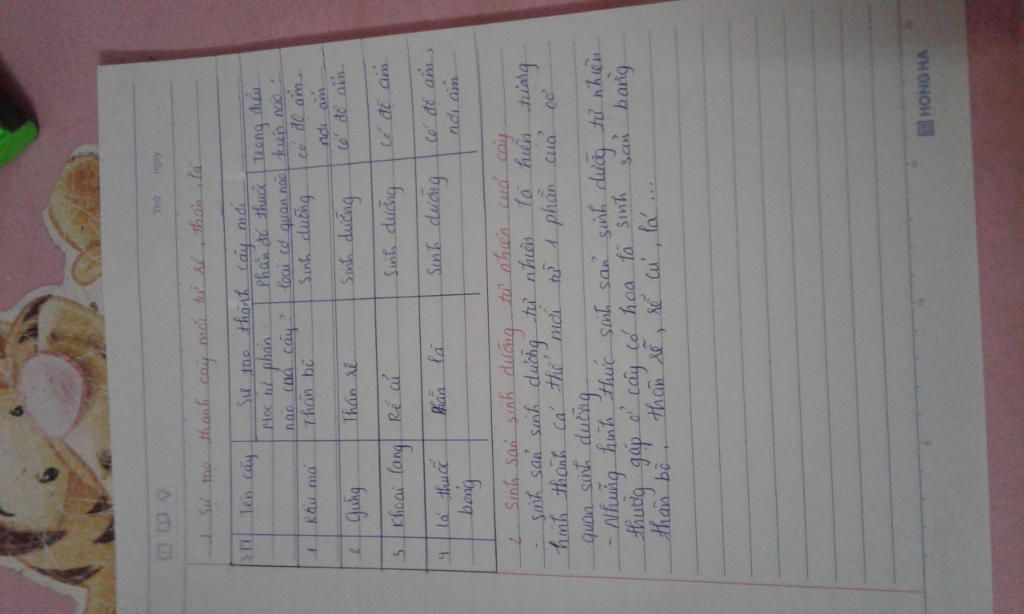 Thứ ngày
1. Sự tạo thành cây mới từ rễ, thân, lá
STT Tên cây Sự tạo thành cây mới
Mọc từ phần nào của cây? Phần đó thuộc loại cơ quan nào Trong điều kiện nào
1 Rau má Thân bò Sinh dưỡng có độ ẩm, nơi ẩm
2 Gừng Thân rễ Sinh dưỡng có độ ẩm
3 Khoai lang Rễ củ Sinh dưỡng có độ ẩm
4 lá thuốc bỏng Phần lá Sinh dưỡng có độ ẩm, nơi ẩm
2. Sinh sản sinh dưỡng tự nhiên của cây
- Sinh sản sinh dưỡng tự nhiên là hiện tượng
hình thành cá thể mới từ 1 phần của cơ
quan sinh dưỡng
- Những hình thức sinh sản sinh dưỡng tự nhiên
thường gặp ở cây có hoa là sinh sản bằng
thân bò, thân rễ, rễ củ, lá ...
HONG HA